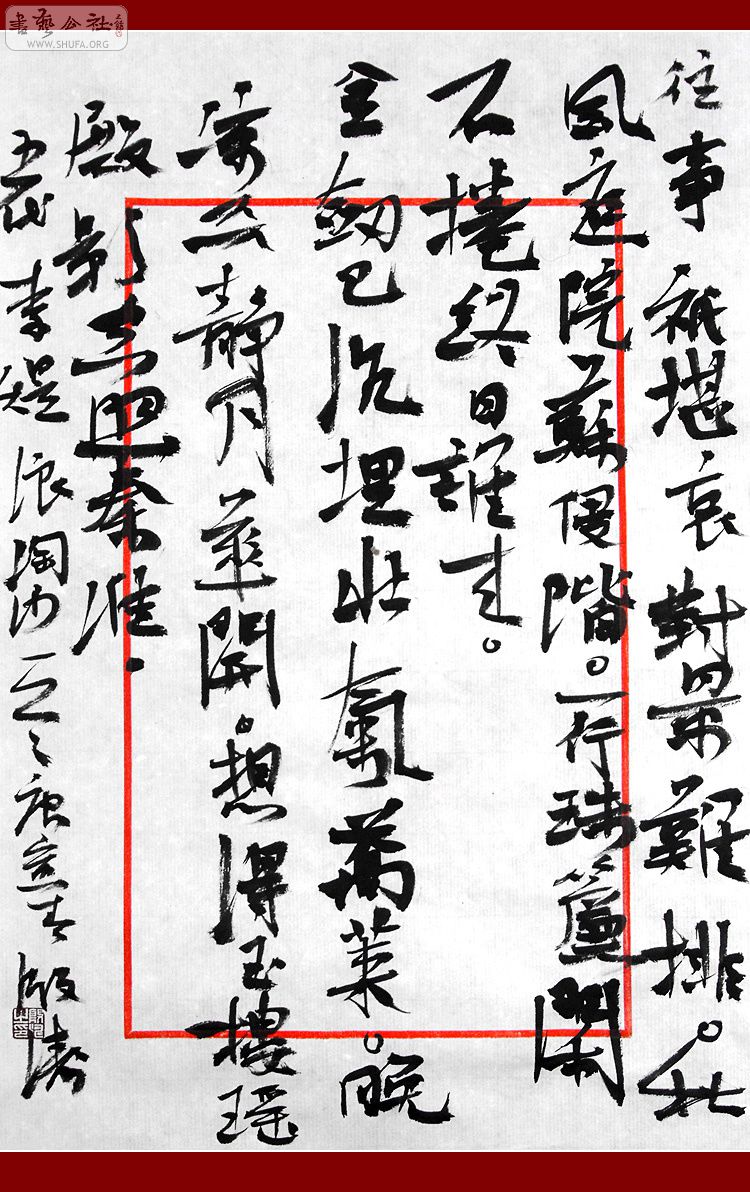 書藝公社
WWW.SHUFA.ORG
往事祇堪哀對景難排。秋
風庭院蘚侵階。一行珠簾閑
不捲終日誰來。
金劍已沉埋壯氣蒿萊。晚
凉天靜月華開。想得玉樓瑶
殿影空照秦淮。
五代李煜浪淘沙一 庚寅春 濤